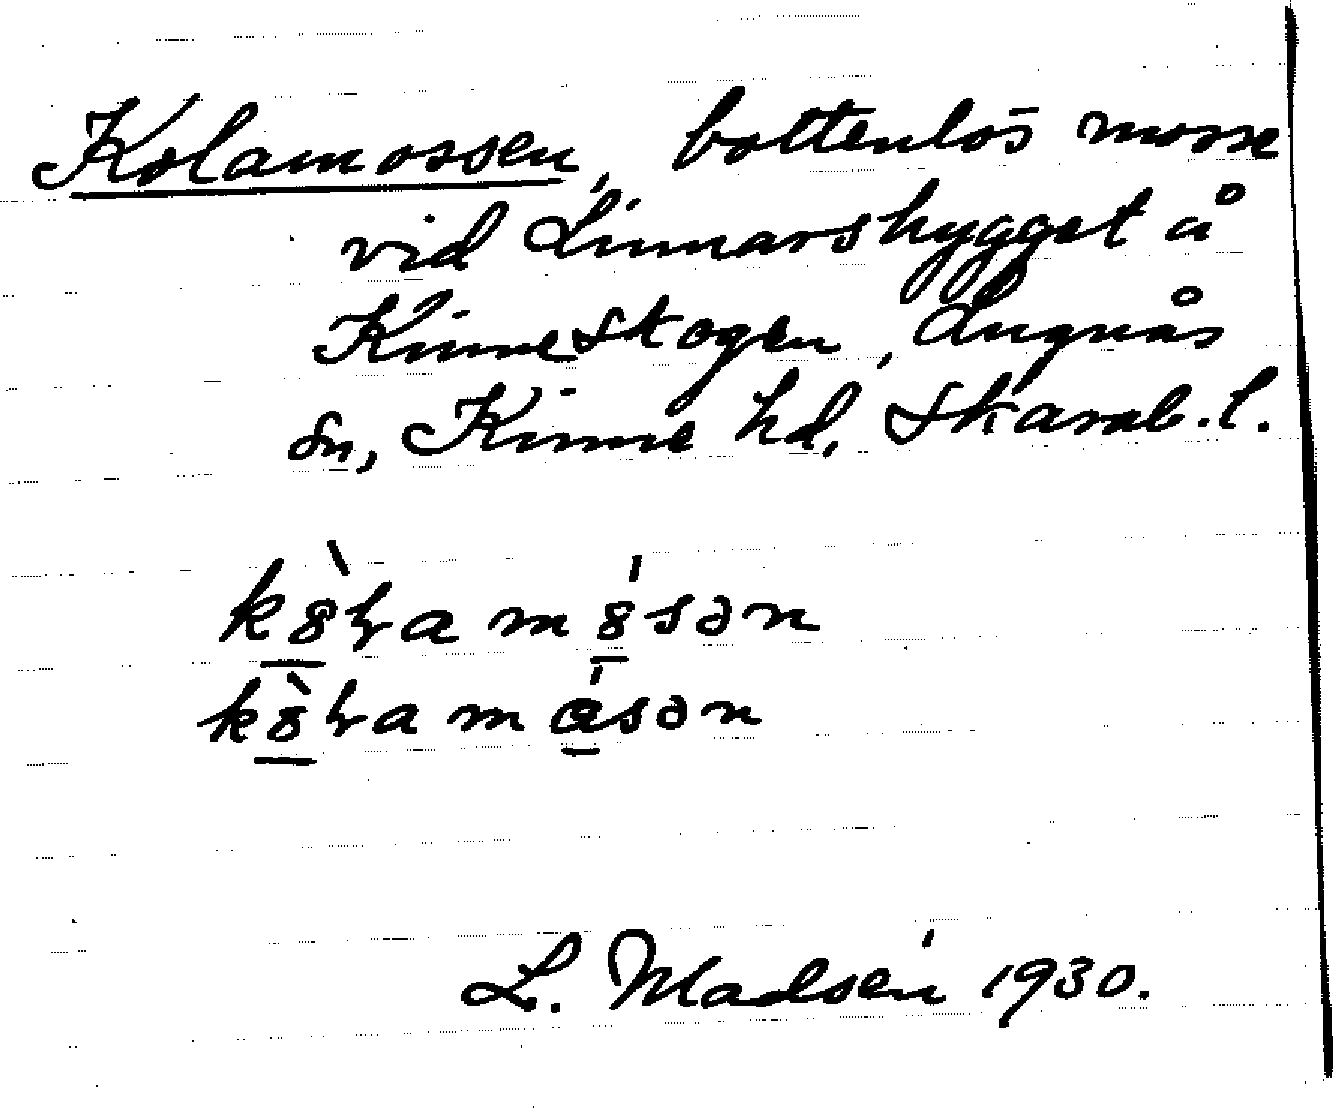 Kolamossen, bottenlös mosse
vid Linnarshygget å
Kinneskogen, Lugnås
sn, Kinne hd, Skarab. l.
kȣ̀ɽa mȣ́sən
kȣ̀ɽa mǽsən
L. Madsén 1930.